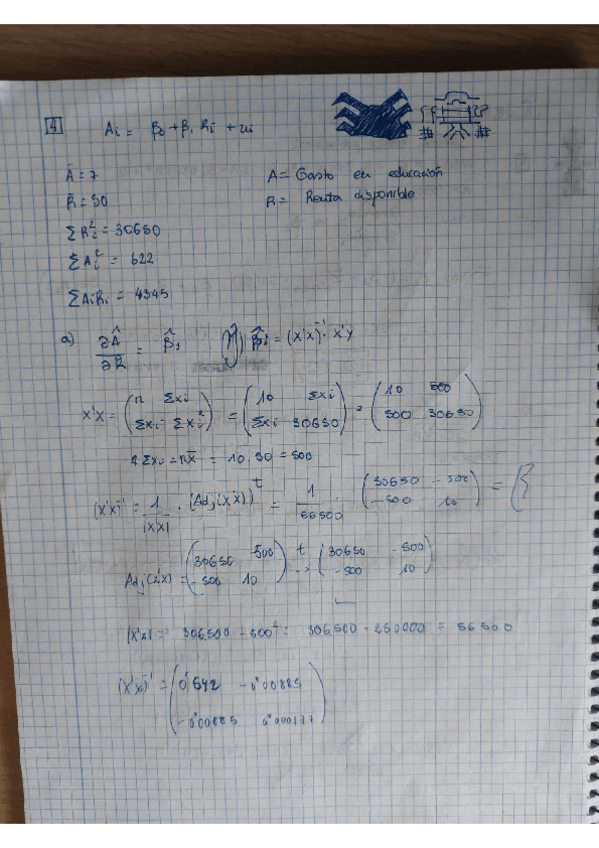 4 Ai = β0 + β1 Ri + ui
Ā = 7 A = Gasto en educación
R̄ = 50 R = Renta disponible
ΣRi² = 30650
ΣAi² = 622
ΣAiRi = 4345
a) ∂Â/∂R = β̂1 β̂ = (X'X)⁻¹ · X'Y
X'X = (n Σxi ; Σxi Σxi²) = (10 Σxi ; Σxi 30650) = (10 500 ; 500 30650)
Σxi = nx̄ = 10 · 50 = 500
(X'X)⁻¹ = 1/|X'X| · (Adj(X'X))ᵗ = 1/56500 · (30650 -500 ; -500 10) =
Adj(X'X) = (30650 -500 ; -500 10) t → (30650 -500 ; -500 10)
|X'X| = 306500 - 500² = 306500 - 250000 = 56500
(X'X)⁻¹ = (0'542 -0'00885 ; -0'00885 0'000177)